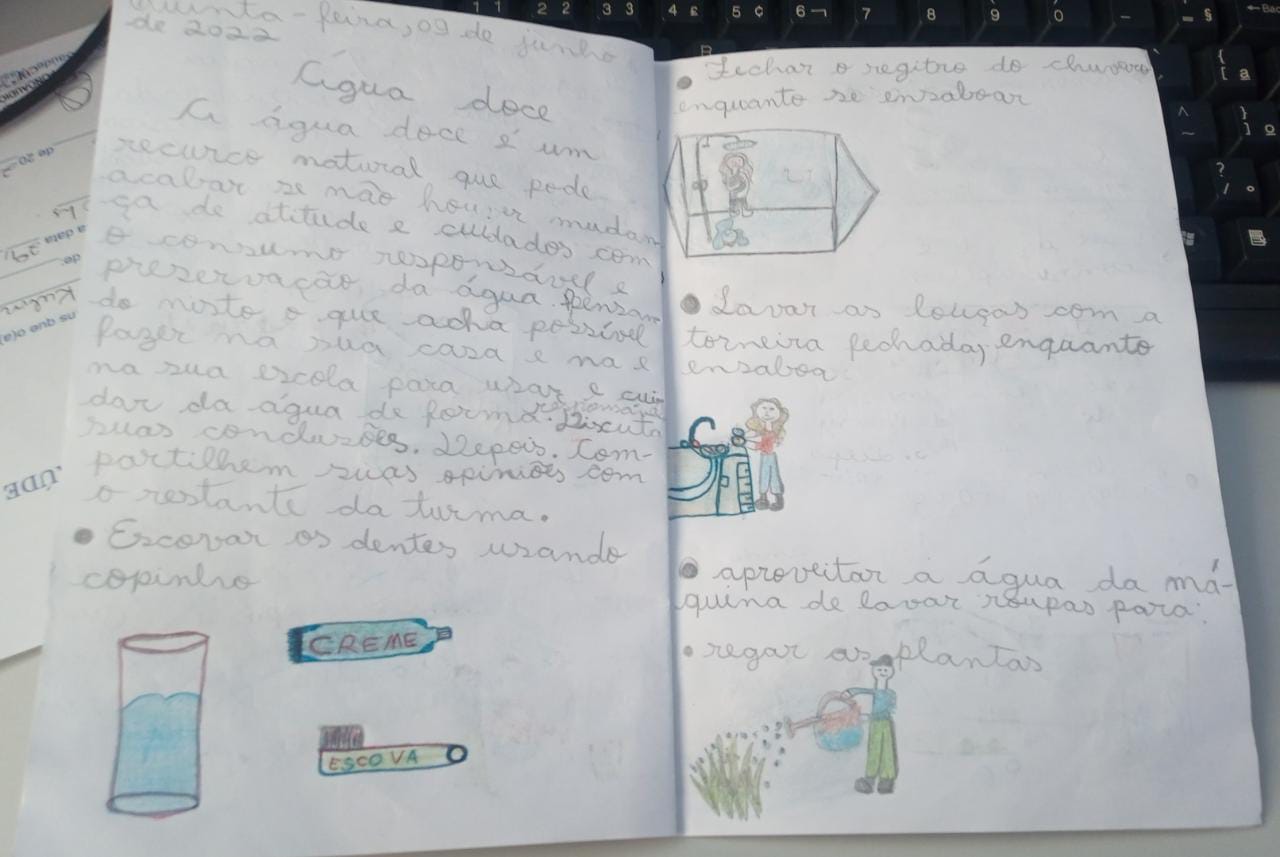 Quinta-feira, 09 de junho
de 2022
Água doce
A água doce é um
recurco natural que pode
acabar se não houver mudan
ça de atitude e cuidados com
o consumo responsável e
preservação da água. Pensan
do nisto o que acha possível
fazer na sua casa e na e
na sua escola para usar e cui
dar da água de forma responsável. Discuta
suas concluzões. Depois. Com-
partilhem suas opiniões com
o restante da turma.
• Escovar os dentes usando
copinho
CREME
ESCOVA
• Fechar o regitro do chuveiro,
enquanto se ensaboar
• Lavar as louças com a
torneira fechada, enquanto
ensaboa
• aproveitar a água da má-
quina de lavar roupas para:
• regar as plantas